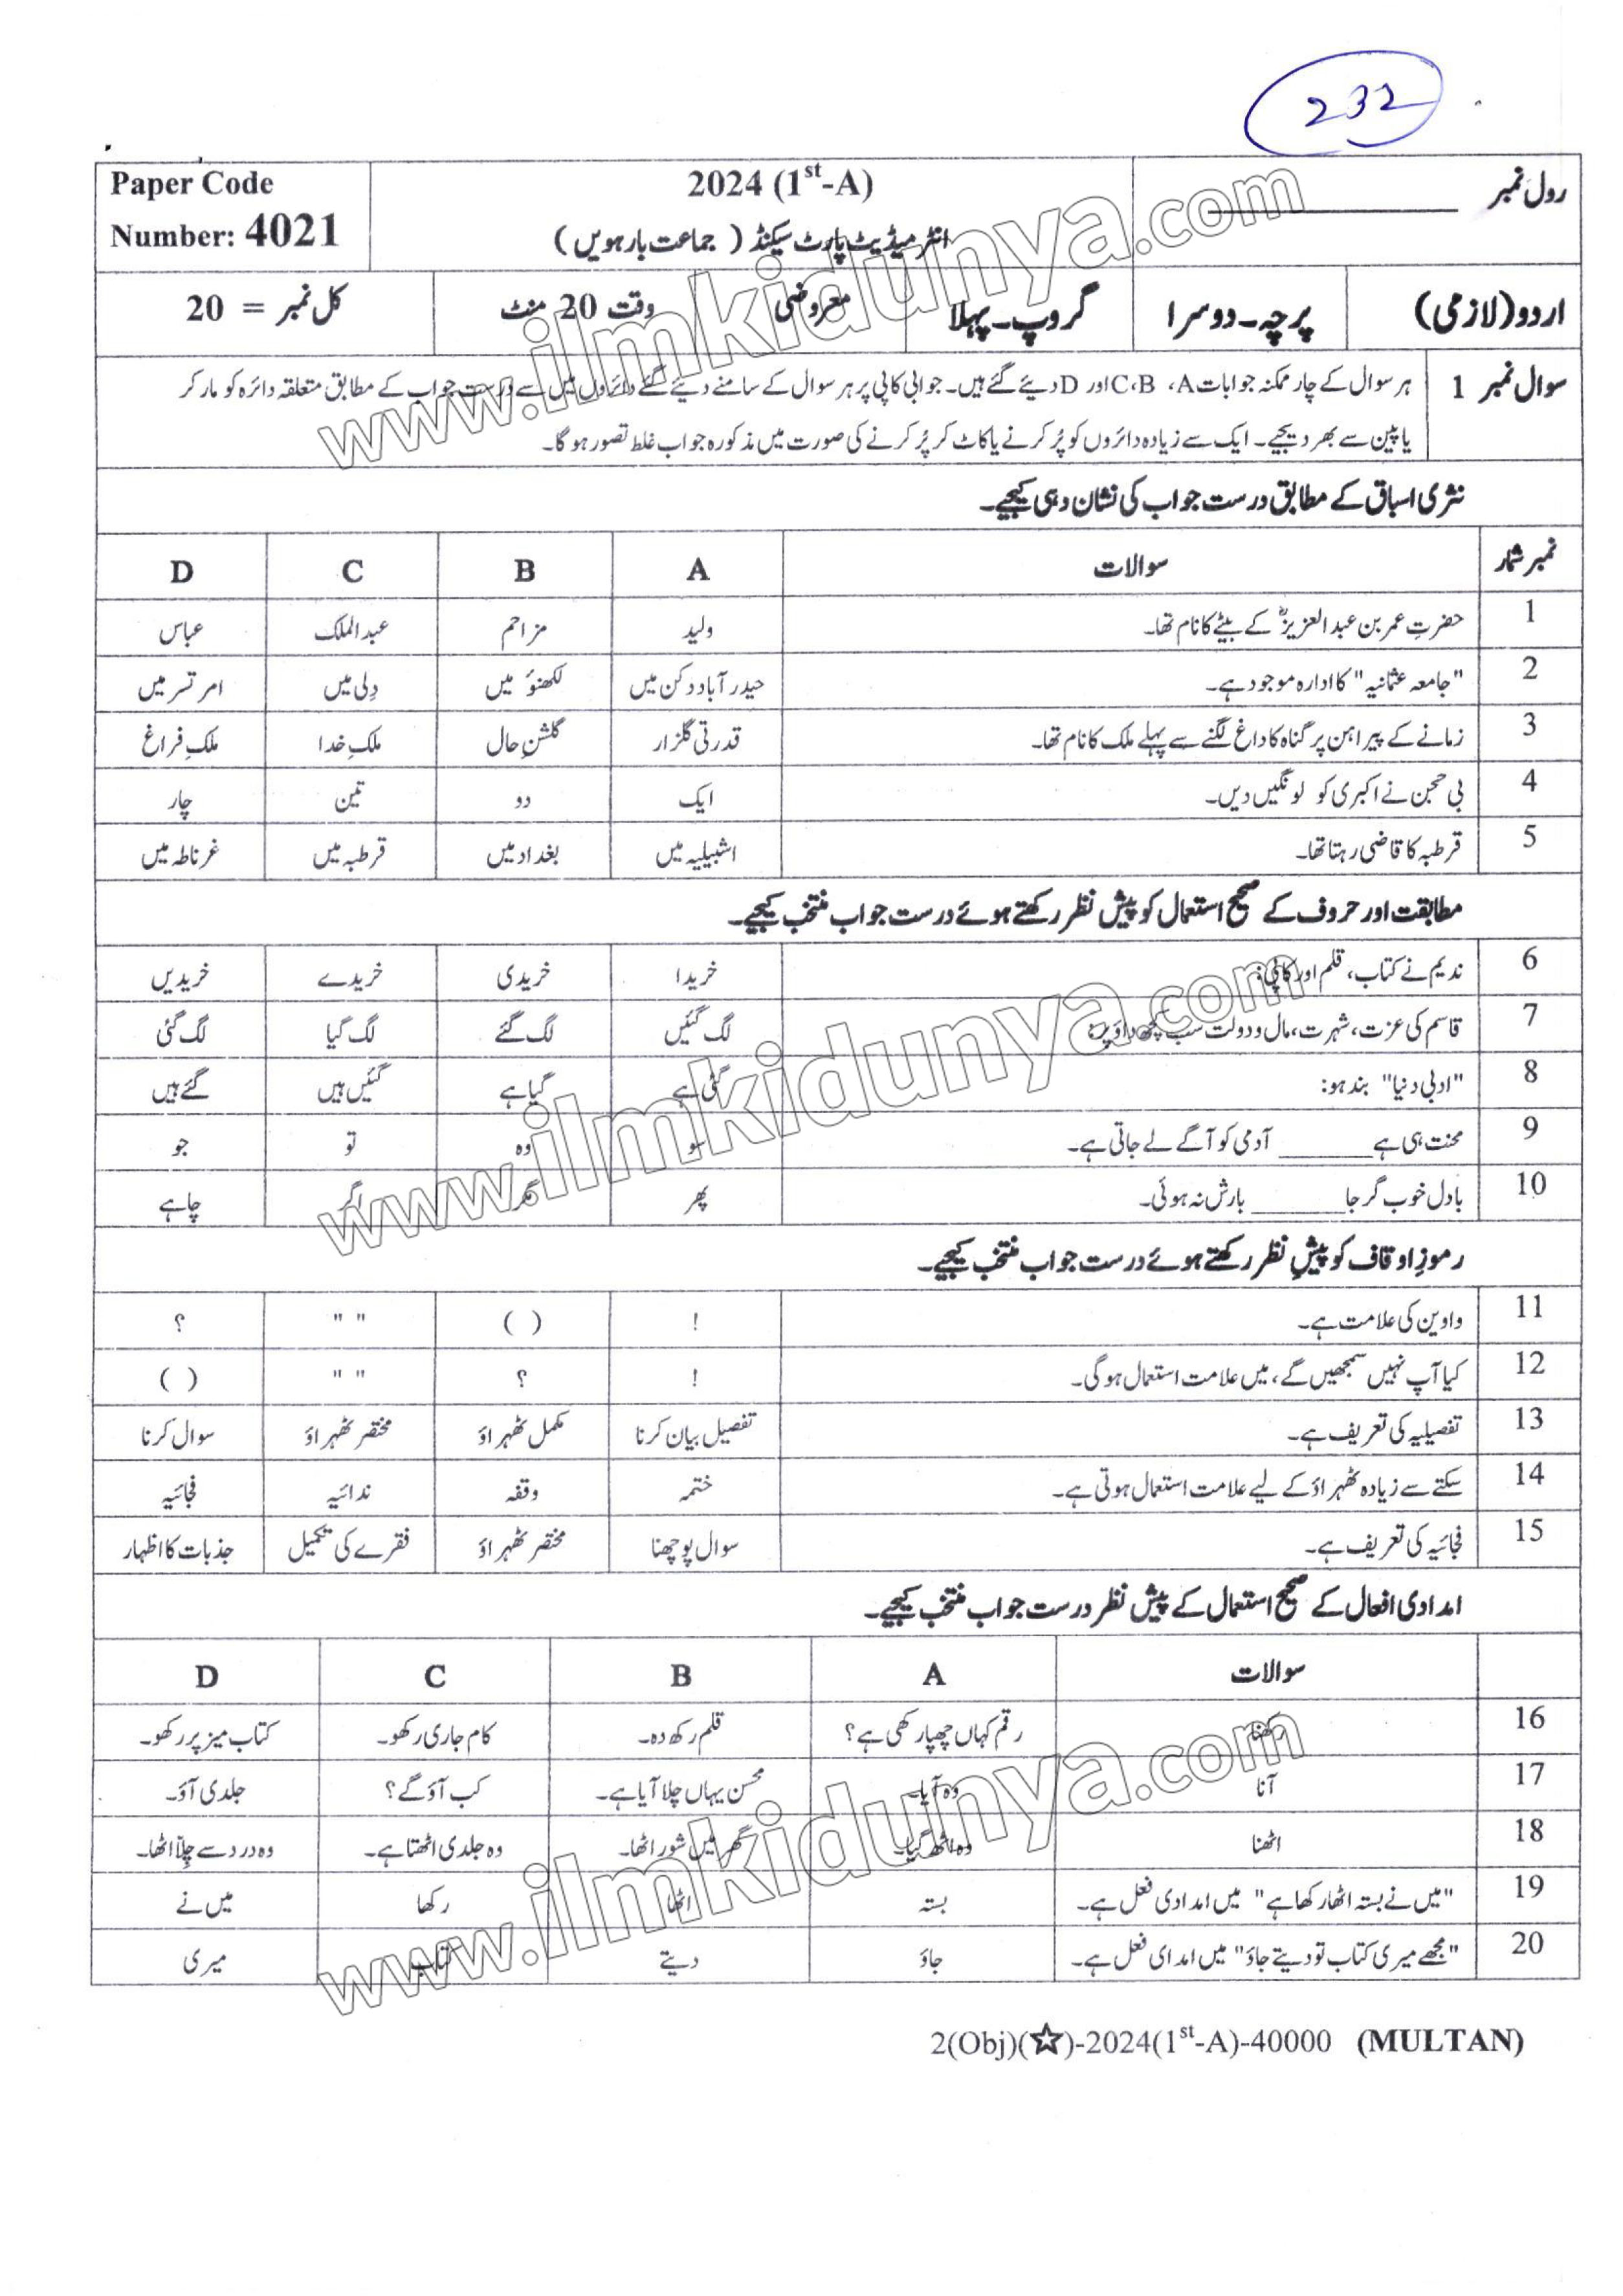 232
Paper Code
Number: 4021
2024 (1st-A)
انٹرمیڈیٹ پارٹ سیکنڈ ( جماعت بارھویں )
رول نمبر
اردو (لازمی) پرچہ۔دوسرا گروپ۔پہلا معروضی وقت 20 منٹ کل نمبر = 20
سوال نمبر 1 ہر سوال کے چار ممکنہ جوابات A، B،C اور D دیئے گئے ہیں۔ جوابی کاپی پر ہر سوال کے سامنے دیئے گئے دائروں میں سے درست جواب کے مطابق متعلقہ دائرہ کو مار کر
یا پین سے بھر دیجیے۔ ایک سے زیادہ دائروں کو پُر کرنے یا کاٹ کر پُر کرنے کی صورت میں مذکورہ جواب غلط تصور ہو گا۔
نثری اسباق کے مطابق درست جواب کی نشان دہی کیجیے۔
نمبر شمار سوالات A B C D
1 حضرت عمر بن عبد العزیزؒ کے بیٹے کا نام تھا۔ ولید مزاحم عبد الملک عباس
2 "جامعہ عثمانیہ" کا ادارہ موجود ہے۔ حیدر آباد دکن میں لکھنؤ میں دِلی میں امرتسر میں
3 زمانے کے پیراہن پر گناہ کا داغ لگنے سے پہلے ملک کا نام تھا۔ قدرتی گلزار گلشنِ حال ملکِ خدا ملکِ فراغ
4 بی حجن نے اکبری کو لونگیں دیں۔ ایک دو تین چار
5 قرطبہ کا قاضی رہتا تھا۔ اشبیلیہ میں بغداد میں قرطبہ میں غرناطہ میں
مطابقت اور حروف کے صحیح استعمال کو پیش نظر رکھتے ہوئے درست جواب منتخب کیجیے۔
6 ندیم نے کتاب، قلم اور کاپی: خریدا خریدی خریدے خریدیں
7 قاسم کی عزت، شہرت، مال و دولت سب کچھ داؤ پر: لگ گئیں لگ گئے لگ گیا لگ گئی
8 "ادبی دنیا" بند ہو: گئی ہے گیا ہے گئیں ہیں گئے ہیں
9 محنت ہی ہے ______ آدمی کو آگے لے جاتی ہے۔ سو وہ تو جو
10 بادل خوب گرجا ______ بارش نہ ہوئی۔ پھر مگر اگر چاہے
رموزِ اوقاف کو پیشِ نظر رکھتے ہوئے درست جواب منتخب کیجیے۔
11 واوین کی علامت ہے۔ ! ( ) " " ؟
12 کیا آپ نہیں سمجھیں گے، میں علامت استعمال ہو گی۔ ! ؟ " " ( )
13 تفصیلیہ کی تعریف ہے۔ تفصیل بیان کرنا مکمل ٹھہراؤ مختصر ٹھہراؤ سوال کرنا
14 سکتے سے زیادہ ٹھہراؤ کے لیے علامت استعمال ہوتی ہے۔ ختمہ وقفہ ندائیہ فجائیہ
15 فجائیہ کی تعریف ہے۔ سوال پوچھنا مختصر ٹھہراؤ فقرے کی تکمیل جذبات کا اظہار
امدادی افعال کے صحیح استعمال کے پیش نظر درست جواب منتخب کیجیے۔
سوالات A B C D
16 رکھنا رقم کہاں چھپا رکھی ہے؟ قلم رکھ دہ۔ کام جاری رکھو۔ کتاب میز پر رکھو۔
17 آنا وہ آیا۔ محسن یہاں چلا آیا ہے۔ کب آؤ گے؟ جلدی آؤ۔
18 اٹھنا وہ اٹھ گیا۔ گھر میں شور اٹھا۔ وہ جلدی اٹھتا ہے۔ وہ درد سے چِلّا اٹھا۔
19 "میں نے بستہ اٹھا رکھا ہے" میں امدادی فعل ہے۔ بستہ اٹھا رکھا میں نے
20 "مجھے میری کتاب تو دیتے جاؤ" میں امدای فعل ہے۔ جاؤ دیتے کتاب میری
2(Obj)(☆)-2024(1st-A)-40000 (MULTAN)
www.ilmkidunya.com
www.ilmkidunya.com
www.ilmkidunya.com